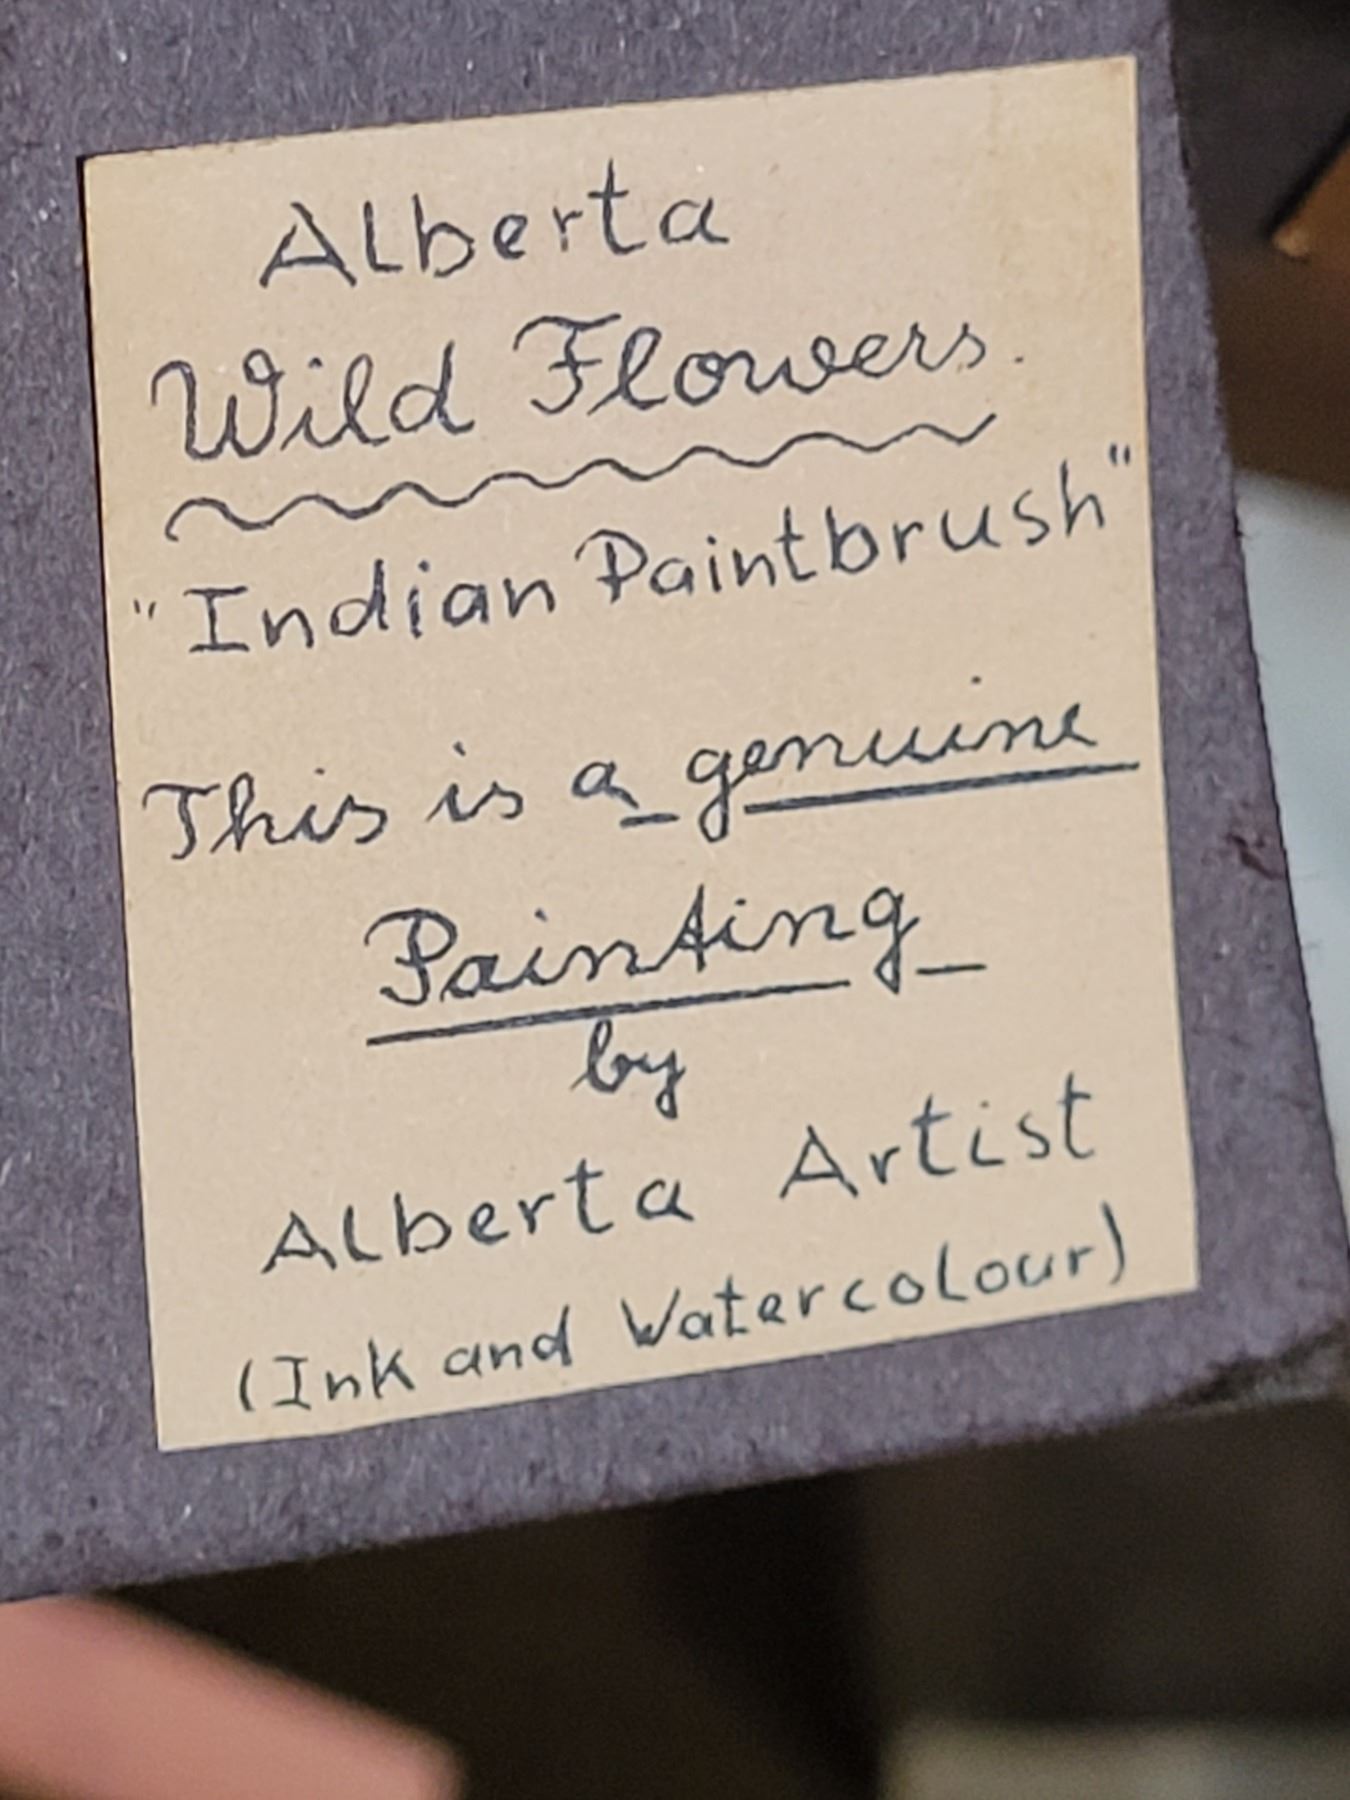 Alberta
Wild Flowers.
"Indian Paintbrush"
This is a genuine
Painting
by
Alberta Artist
(Ink and Watercolour)